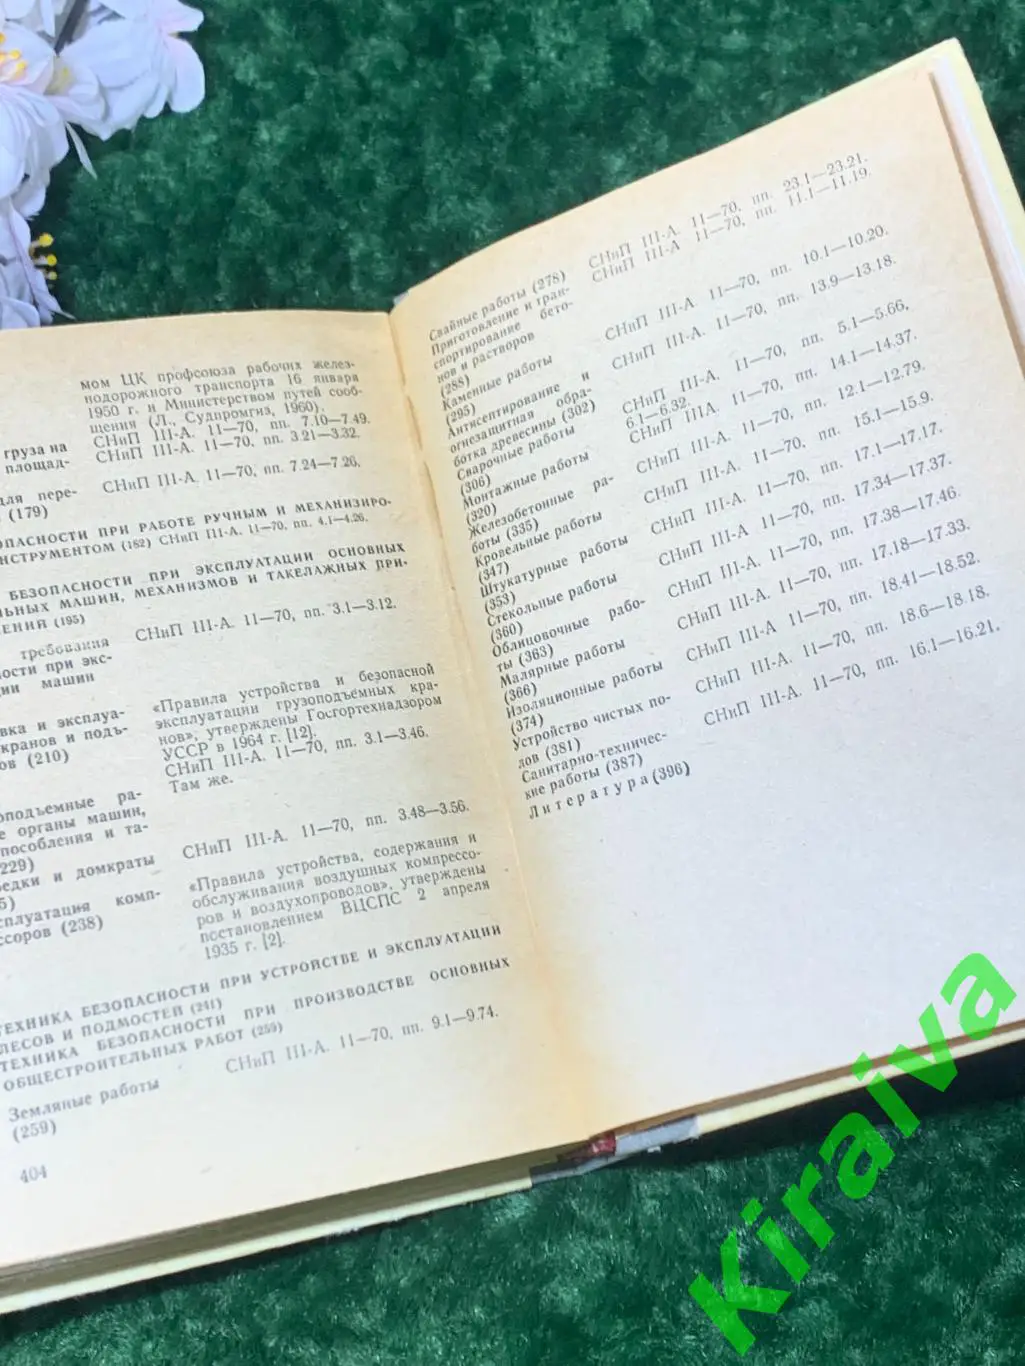 мом ЦК профсоюза рабочих желез-
нодорожного транспорта 16 января
1950 г. и Министерством путей сооб-
щения (Л., Судпромгиз, 1960).
груза на СНиП III-А. 11—70, пп. 7.10—7.49.
площад- СНиП III-А. 11—70, пп. 3.21—3.32.
для пере- СНиП III-А. 11—70, пп. 7.24—7.26.
(179)
ОПАСНОСТИ ПРИ РАБОТЕ РУЧНЫМ И МЕХАНИЗИРО-
НСТРУМЕНТОМ (182) СНиП III-А. 11—70, пп. 4.1—4.26.
БЕЗОПАСНОСТИ ПРИ ЭКСПЛУАТАЦИИ ОСНОВНЫХ
ЛЬНЫХ МАШИН, МЕХАНИЗМОВ И ТАКЕЛАЖНЫХ ПРИ-
ЛЕНИЙ (195)
требования СНиП III-А. 11—70, пп. 3.1—3.12.
ности при экс-
ции машин
вка и эксплуа- «Правила устройства и безопасной
кранов и подъ- эксплуатации грузоподъемных кра-
ов (210) нов», утверждены Госгортехнадзором
УССР в 1964 г. [12].
СНиП III-А. 11—70, пп. 3.1—3.46.
оподъемные ра- Там же.
е органы машин,
способления и та-
229)
едки и домкраты СНиП III-А. 11—70, пп. 3.48—3.56.
5)
сплуатация комп- «Правила устройства, содержания и
ссоров (238) обслуживания воздушных компрессо-
ров и воздухопроводов», утверждены
постановлением ВЦСПС 2 апреля
1935 г. [2].
ТЕХНИКА БЕЗОПАСНОСТИ ПРИ УСТРОЙСТВЕ И ЭКСПЛУАТАЦИИ
ЛЕСОВ И ПОДМОСТЕЙ (241)
ТЕХНИКА БЕЗОПАСНОСТИ ПРИ ПРОИЗВОДСТВЕ ОСНОВНЫХ
ОБЩЕСТРОИТЕЛЬНЫХ РАБОТ (259)
Земляные работы СНиП III-А. 11—70, пп. 9.1—9.74.
(259)
404
Свайные работы (278) СНиП III-А. 11—70, пп. 23.1—23.21.
Приготовление и тран- СНиП III-А 11—70, пп. 11.1—11.19.
спортирование бето-
нов и растворов
(288)
Каменные работы СНиП III-А 11—70, пп. 10.1—10.20.
(295)
Антисептирование и СНиП III-А. 11—70, пп. 13.9—13.18.
огнезащитная обра-
ботка древесины (302)
Сварочные работы СНиП III-А. 11—70, пп. 5.1—5.66,
(306) 6.1—6.32.
Монтажные работы СНиП IIIА. 11—70, пп. 14.1—14.37.
(320)
Железобетонные ра- СНиП III-А. 11—70, пп. 12.1—12.79.
боты (335)
Кровельные работы СНиП III-А. 11—70, пп. 15.1—15.9.
(347)
Штукатурные работы СНиП III-А. 11—70, пп. 17.1—17.17.
(353)
Стекольные работы СНиП III-А 11—70, пп. 17.34—17.37.
(360)
Облицовочные рабо- СНиП III-А. 11—70, пп. 17.38—17.46.
ты (363)
Малярные работы СНиП III-А. 11—70, пп. 17.18—17.33.
(366)
Изоляционные работы СНиП III-А 11—70, пп. 18.41—18.52.
(374)
Устройство чистых по- СНиП III-А. 11—70, пп. 18.6—18.18.
лов (381)
Санитарно-техничес- СНиП III-А. 11—70, пп. 16.1—16.21.
кие работы (387)
Литература (396)
Kiraiva